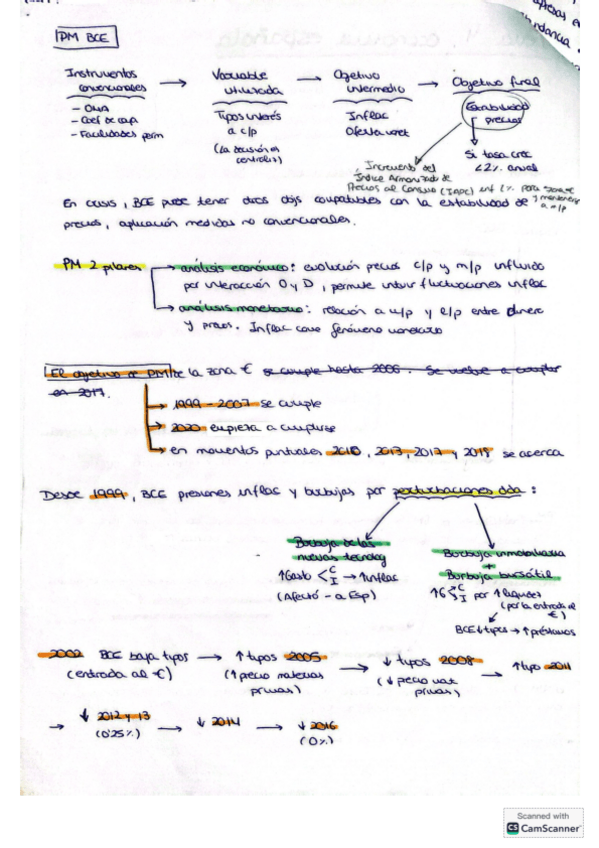 PM BCE
Instrumentos convencionales → Variable utilizada → Objetivo intermedio → Objetivo final
- OMA
- Coef de caja
- Facilidades perm
Tipos interés a c/p
(La decisión es controlis)
Inflac
Oferta monet
Estabilidad precios
Si tasa crec
<2% anual
Incremento del
Índice Armonizado de
Precios al Consumo (IAPC) inf 2% para zona €
y mantenerse
a m/p
En crisis, BCE puede tener otros objs compatibles con la estabilidad de
precios, aplicación medidas no convencionales.
PM 2 pilares
→ análisis económico: evolución precios c/p y m/p influido
por interacción O y D, permite intuir fluctuaciones inflac
→ análisis monetario: relación a m/p y l/p entre dinero
y precios. Inflac como fenómeno monetario
El objetivo de PM de la zona € se cumple hasta 2006. Se vuelve a cumplir
en 2017.
→ 1999-2007 se cumple
→ 2020 empieza a cumplirse
→ en momentos puntuales 2010, 2013, 2017 y 2018 se acerca
Desde 1999, BCE presiones inflac y burbujas por perturbaciones dda:
Burbuja de las
nuevas tecnolog
↑Gasto < C I → ↑Inflac
(Afectó - a Esp)
Burbuja inmobiliaria
+
Burbuja bursátil
↑G < C I por ↑liquidez
(por la entrada al
€)
BCE↓tipos → ↑préstamos
2002 BCE baja tipos → ↑ tipos 2005 → ↓ tipos 2008 → ↑tipo 2011
(entrada al €)
(↑ precio materias
primas)
(↓ precio mat
primas)
→ ↓ 2012 y 13 → ↓ 2014 → ↓ 2016
(0'25%)
(0%)
Scanned with
CS CamScanner